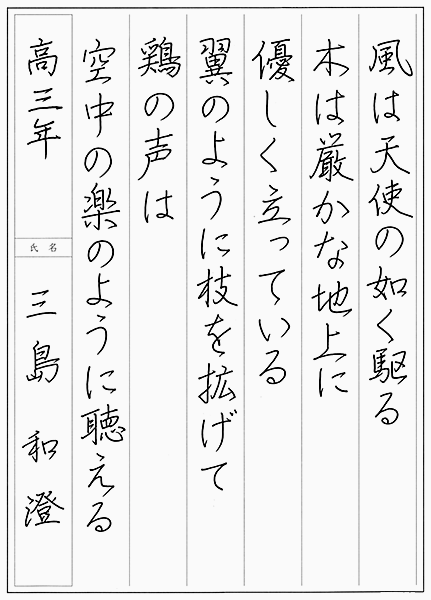 風は天使の如く駆る
木は厳かな地上に
優しく立っている
翼のように枝を拡げて
鶏の声は
空中の楽のように聴える
高三年
氏名
三島和澄